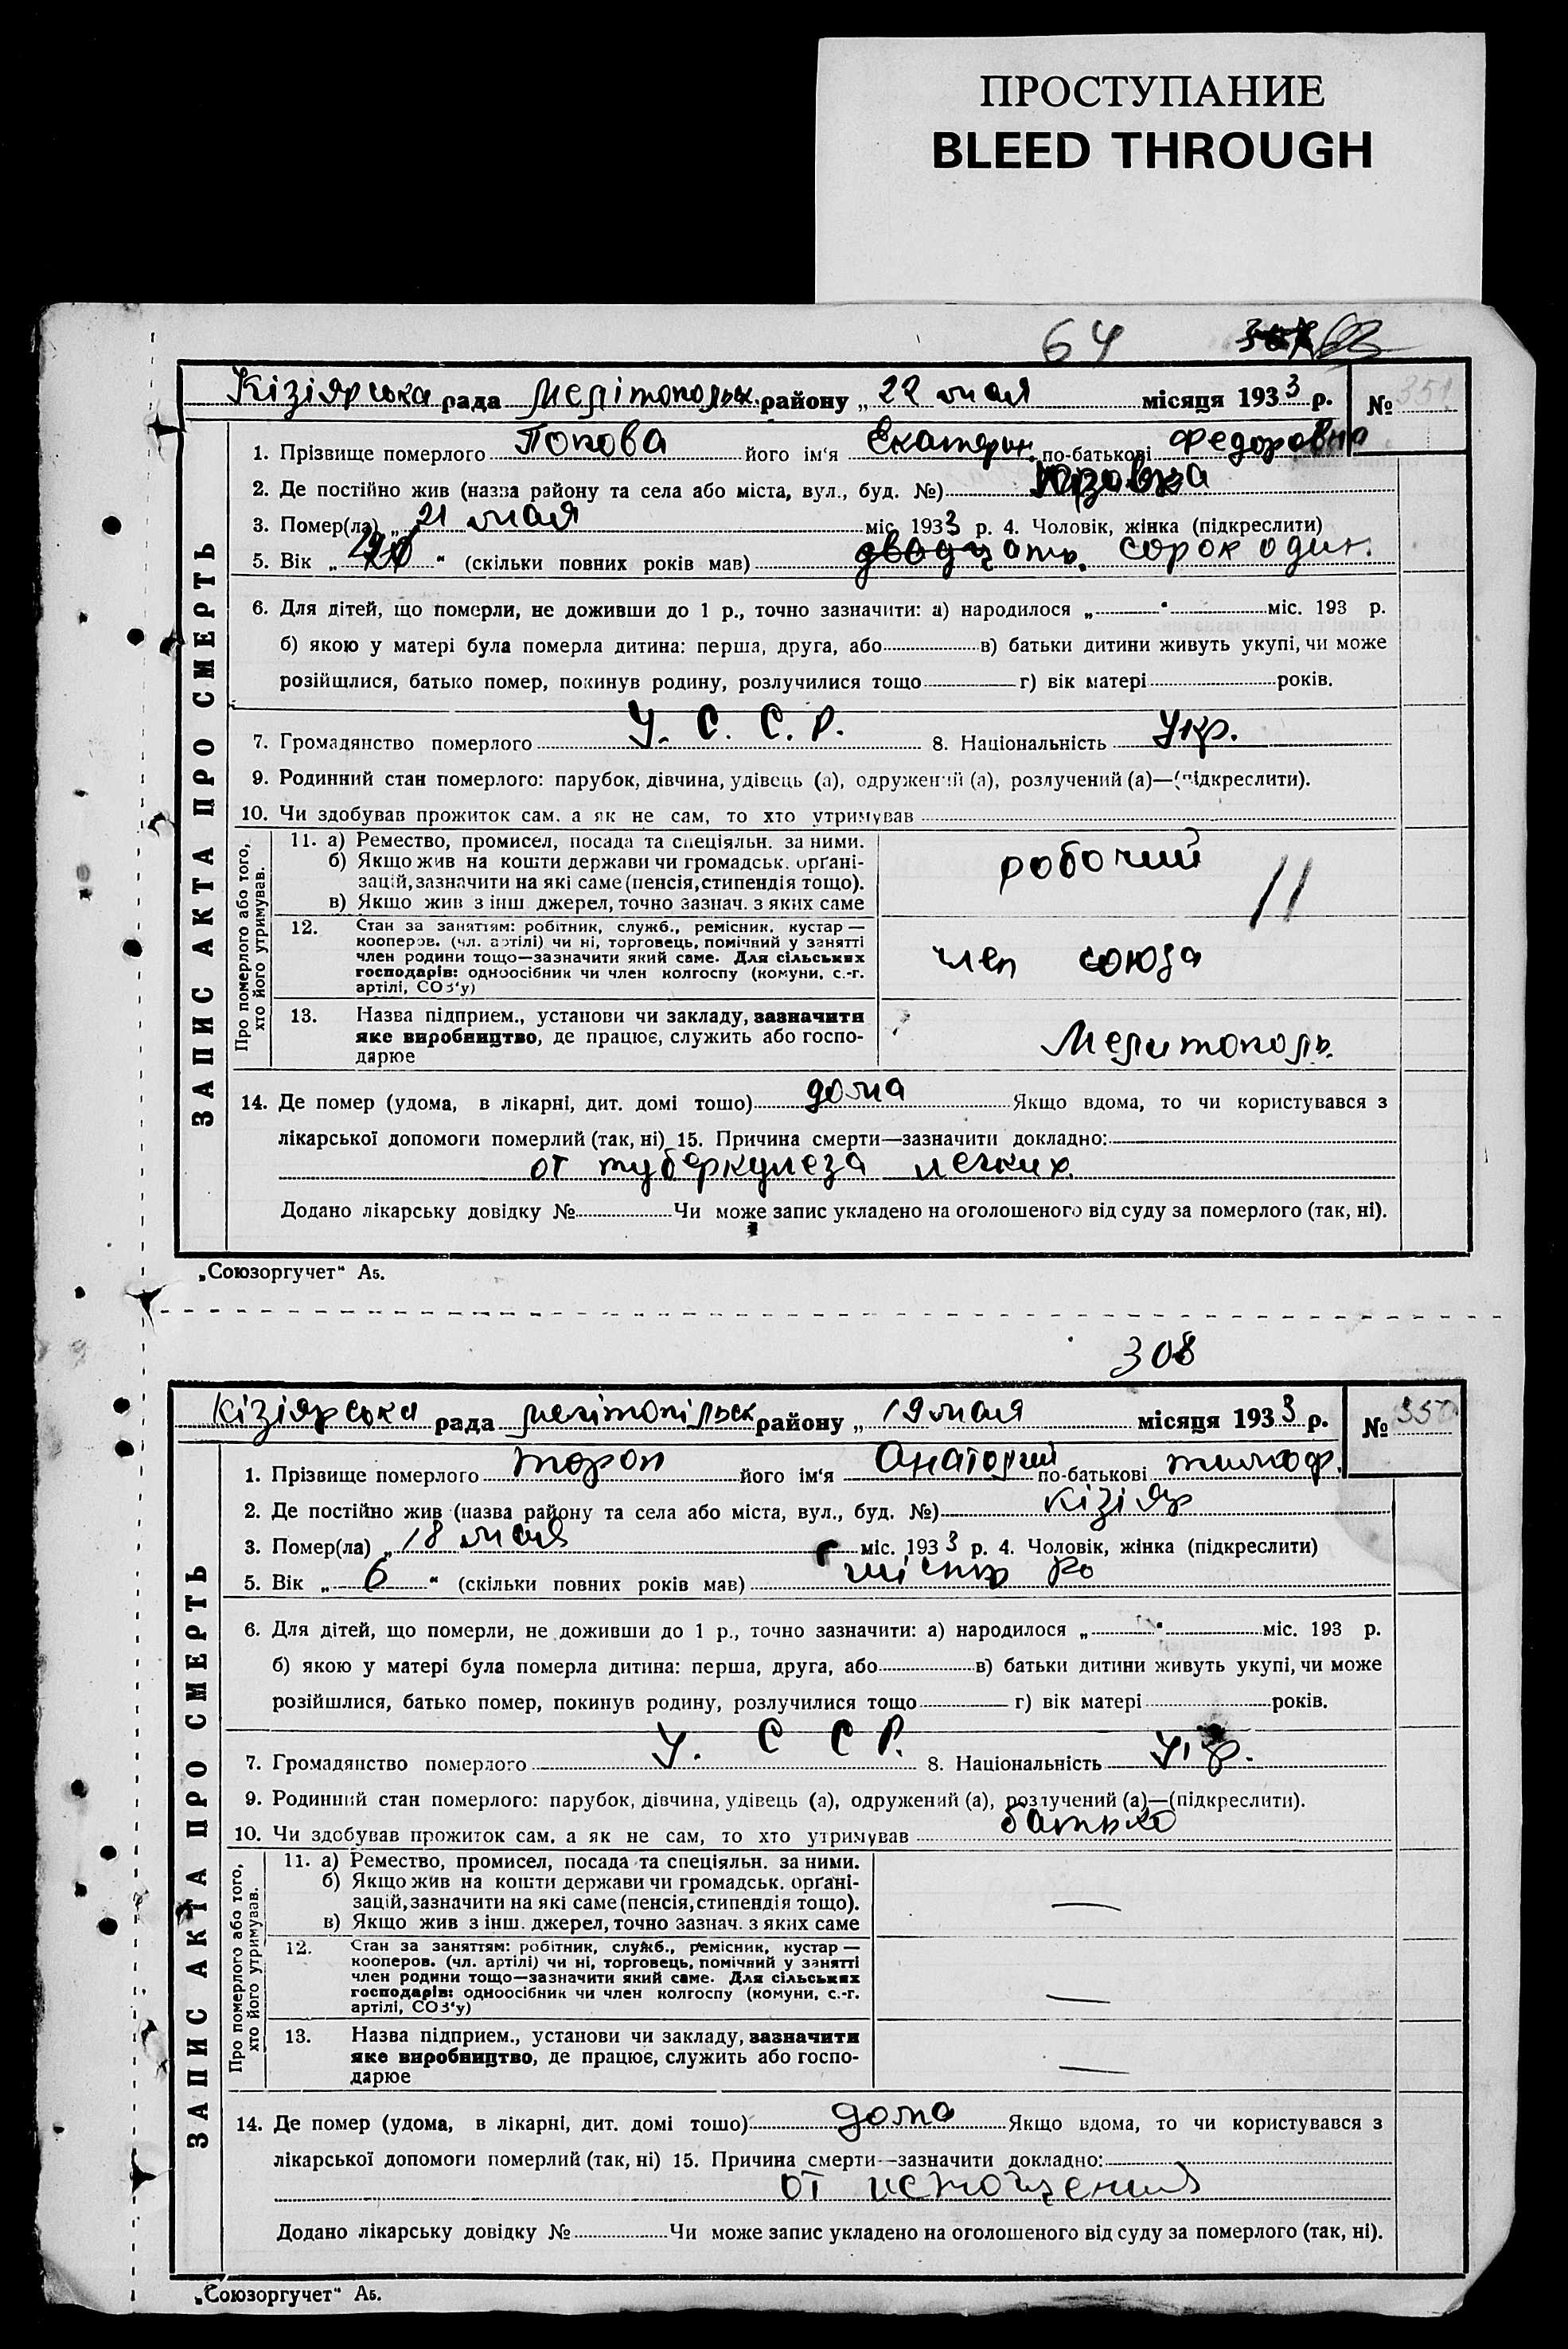 ПРОСТУПАНИЕ
BLEED THROUGH
64
Кізіярська рада Мелітопольск. района „22 мая місяця 1933 р. № 351
1. Прізвище померлого Попова його ім'я Екатерин. по-батькові Федоровна
2. Де постійно жив (назва району та села або міста, вул., буд. №)
3. Помер(ла) „21 мая міс. 1933 р. 4. Чоловік, жінка (підкреслити)
5. Вік „ “ (скільки повних років мав) двадцать. сорок один.
6. Для дітей, що померли, не доживши до 1 р., точно зазначити: а) народилося „ “ міс. 193 р.
б) якою у матері була померла дитина: перша, друга, або в) батьки дитини живуть укупі, чи може
розійшлися, батько помер, покинув родину, розлучилися тощо г) вік матері років.
7. Громадянство померлого У. С. С. Р. 8. Національність Укр.
9. Родинний стан померлого: парубок, дівчина, удівець (а), одружений (а), розлучений (а)—(підкреслити).
10. Чи здобував прожиток сам, а як не сам, то хто утримував
ЗАПИС АКТА ПРО СМЕРТЬ
Про померлого або того,
хто його утримував.
11. а) Ремество, промисел, посада та спеціяльн. за ними.
б) Якщо жив на кошти держави чи громадськ. орґані-
зацій, зазначити на які саме (пенсія, стипендія тощо).
в) Якщо жив з інш. джерел, точно зазнач. з яких саме
робочий
12. Стан за заняттям: робітник, служб., ремісник, кустар —
кооперов. (чл. артілі) чи ні, торговець, помічний у занятті
член родини тощо—зазначити який саме. Для сільських
господарів: одноосібник чи член колгоспу (комуни, с.-г.
артілі, СОЗ'у)
член союза
13. Назва підприєм., установи чи закладу, зазначити
яке виробництво, де працює, служить або госпо-
дарює
Мелитополь.
14. Де помер (удома, в лікарні, дит. домі тошо) дома Якщо вдома, то чи користувався з
лікарської допомоги померлий (так, ні) 15. Причина смерти—зазначити докладно:
от туберкулеза легких.
Додано лікарську довідку № Чи може запис укладено на оголошеного від суду за померлого (так, ні).
„Союзоргучет“ А5.
308
Кізіярська рада мелітопільск району „19 мая місяця 1933 р. № 350
1. Прізвище померлого його ім'я Анатолий по-батькові тимоф.
2. Де постійно жив (назва району та села або міста, вул., буд. №) Кізіяр
3. Помер(ла) „18 мая міс. 1933 р. 4. Чоловік, жінка (підкреслити)
5. Вік „6“ (скільки повних років мав) шість ро
6. Для дітей, що померли, не доживши до 1 р., точно зазначити: а) народилося „ “ міс. 193 р.
б) якою у матері була померла дитина: перша, друга, або в) батьки дитини живуть укупі, чи може
розійшлися, батько помер, покинув родину, розлучилися тощо г) вік матері років.
7. Громадянство померлого У. С С Р. 8. Національність Укр.
9. Родинний стан померлого: парубок, дівчина, удівець (а), одружений (а), розлучений (а)—(підкреслити).
10. Чи здобував прожиток сам, а як не сам, то хто утримував батько
ЗАПИС АКТА ПРО СМЕРТЬ
Про померлого або того,
хто його утримував.
11. а) Ремество, промисел, посада та спеціяльн. за ними.
б) Якщо жив на кошти держави чи громадськ. орґані-
зацій, зазначити на які саме (пенсія, стипендія тощо).
в) Якщо жив з інш. джерел, точно зазнач. з яких саме
—
12. Стан за заняттям: робітник, служб., ремісник, кустар —
кооперов. (чл. артілі) чи ні, торговець, помічний у занятті
член родини тощо—зазначити який саме. Для сільських
господарів: одноосібник чи член колгоспу (комуни, с.-г.
артілі, СОЗ'у)
—
13. Назва підприєм., установи чи закладу, зазначити
яке виробництво, де працює, служить або госпо-
дарює
—
14. Де помер (удома, в лікарні, дит. домі тошо) дома Якщо вдома, то чи користувався з
лікарської допомоги померлий (так, ні) 15. Причина смерти—зазначити докладно:
от истощения
Додано лікарську довідку № Чи може запис укладено на оголошеного від суду за померлого (так, ні).
„Союзоргучет“ А5.